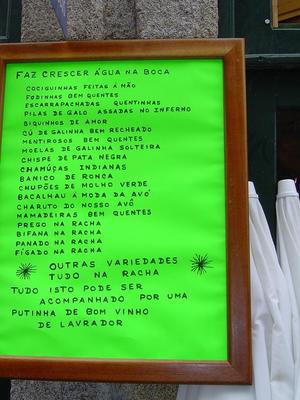 FAZ CRESCER ÁGUA NA BOCA
COCIGUINHAS FEITAS Á MÃO
FODINHAS BEM QUENTES
ESCARRAPACHADAS QUENTINHAS
PILAS DE GALO ASSADAS NO INFERNO
BIQUINHOS DE AMOR
CÚ DE GALINHA BEM RECHEADO
MENTIROSOS BEM QUENTES
MOELAS DE GALINHA SOLTEIRA
CHISPE DE PATA NEGRA
CHAMUÇAS INDIANAS
BANICO DE RONCA
CHUPÕES DE MOLHO VERDE
BACALHAU Á MODA DA AVÓ
CHARUTO DO NOSSO AVÔ
MAMADEIRAS BEM QUENTES
PREGO NA RACHA
BIFANA NA RACHA
PANADO NA RACHA
FÍGADO NA RACHA
OUTRAS VARIEDADES
TUDO NA RACHA
TUDO ISTO PODE SER
ACOMPANHADO POR UMA
PUTINHA DE BOM VINHO
DE LAVRADOR